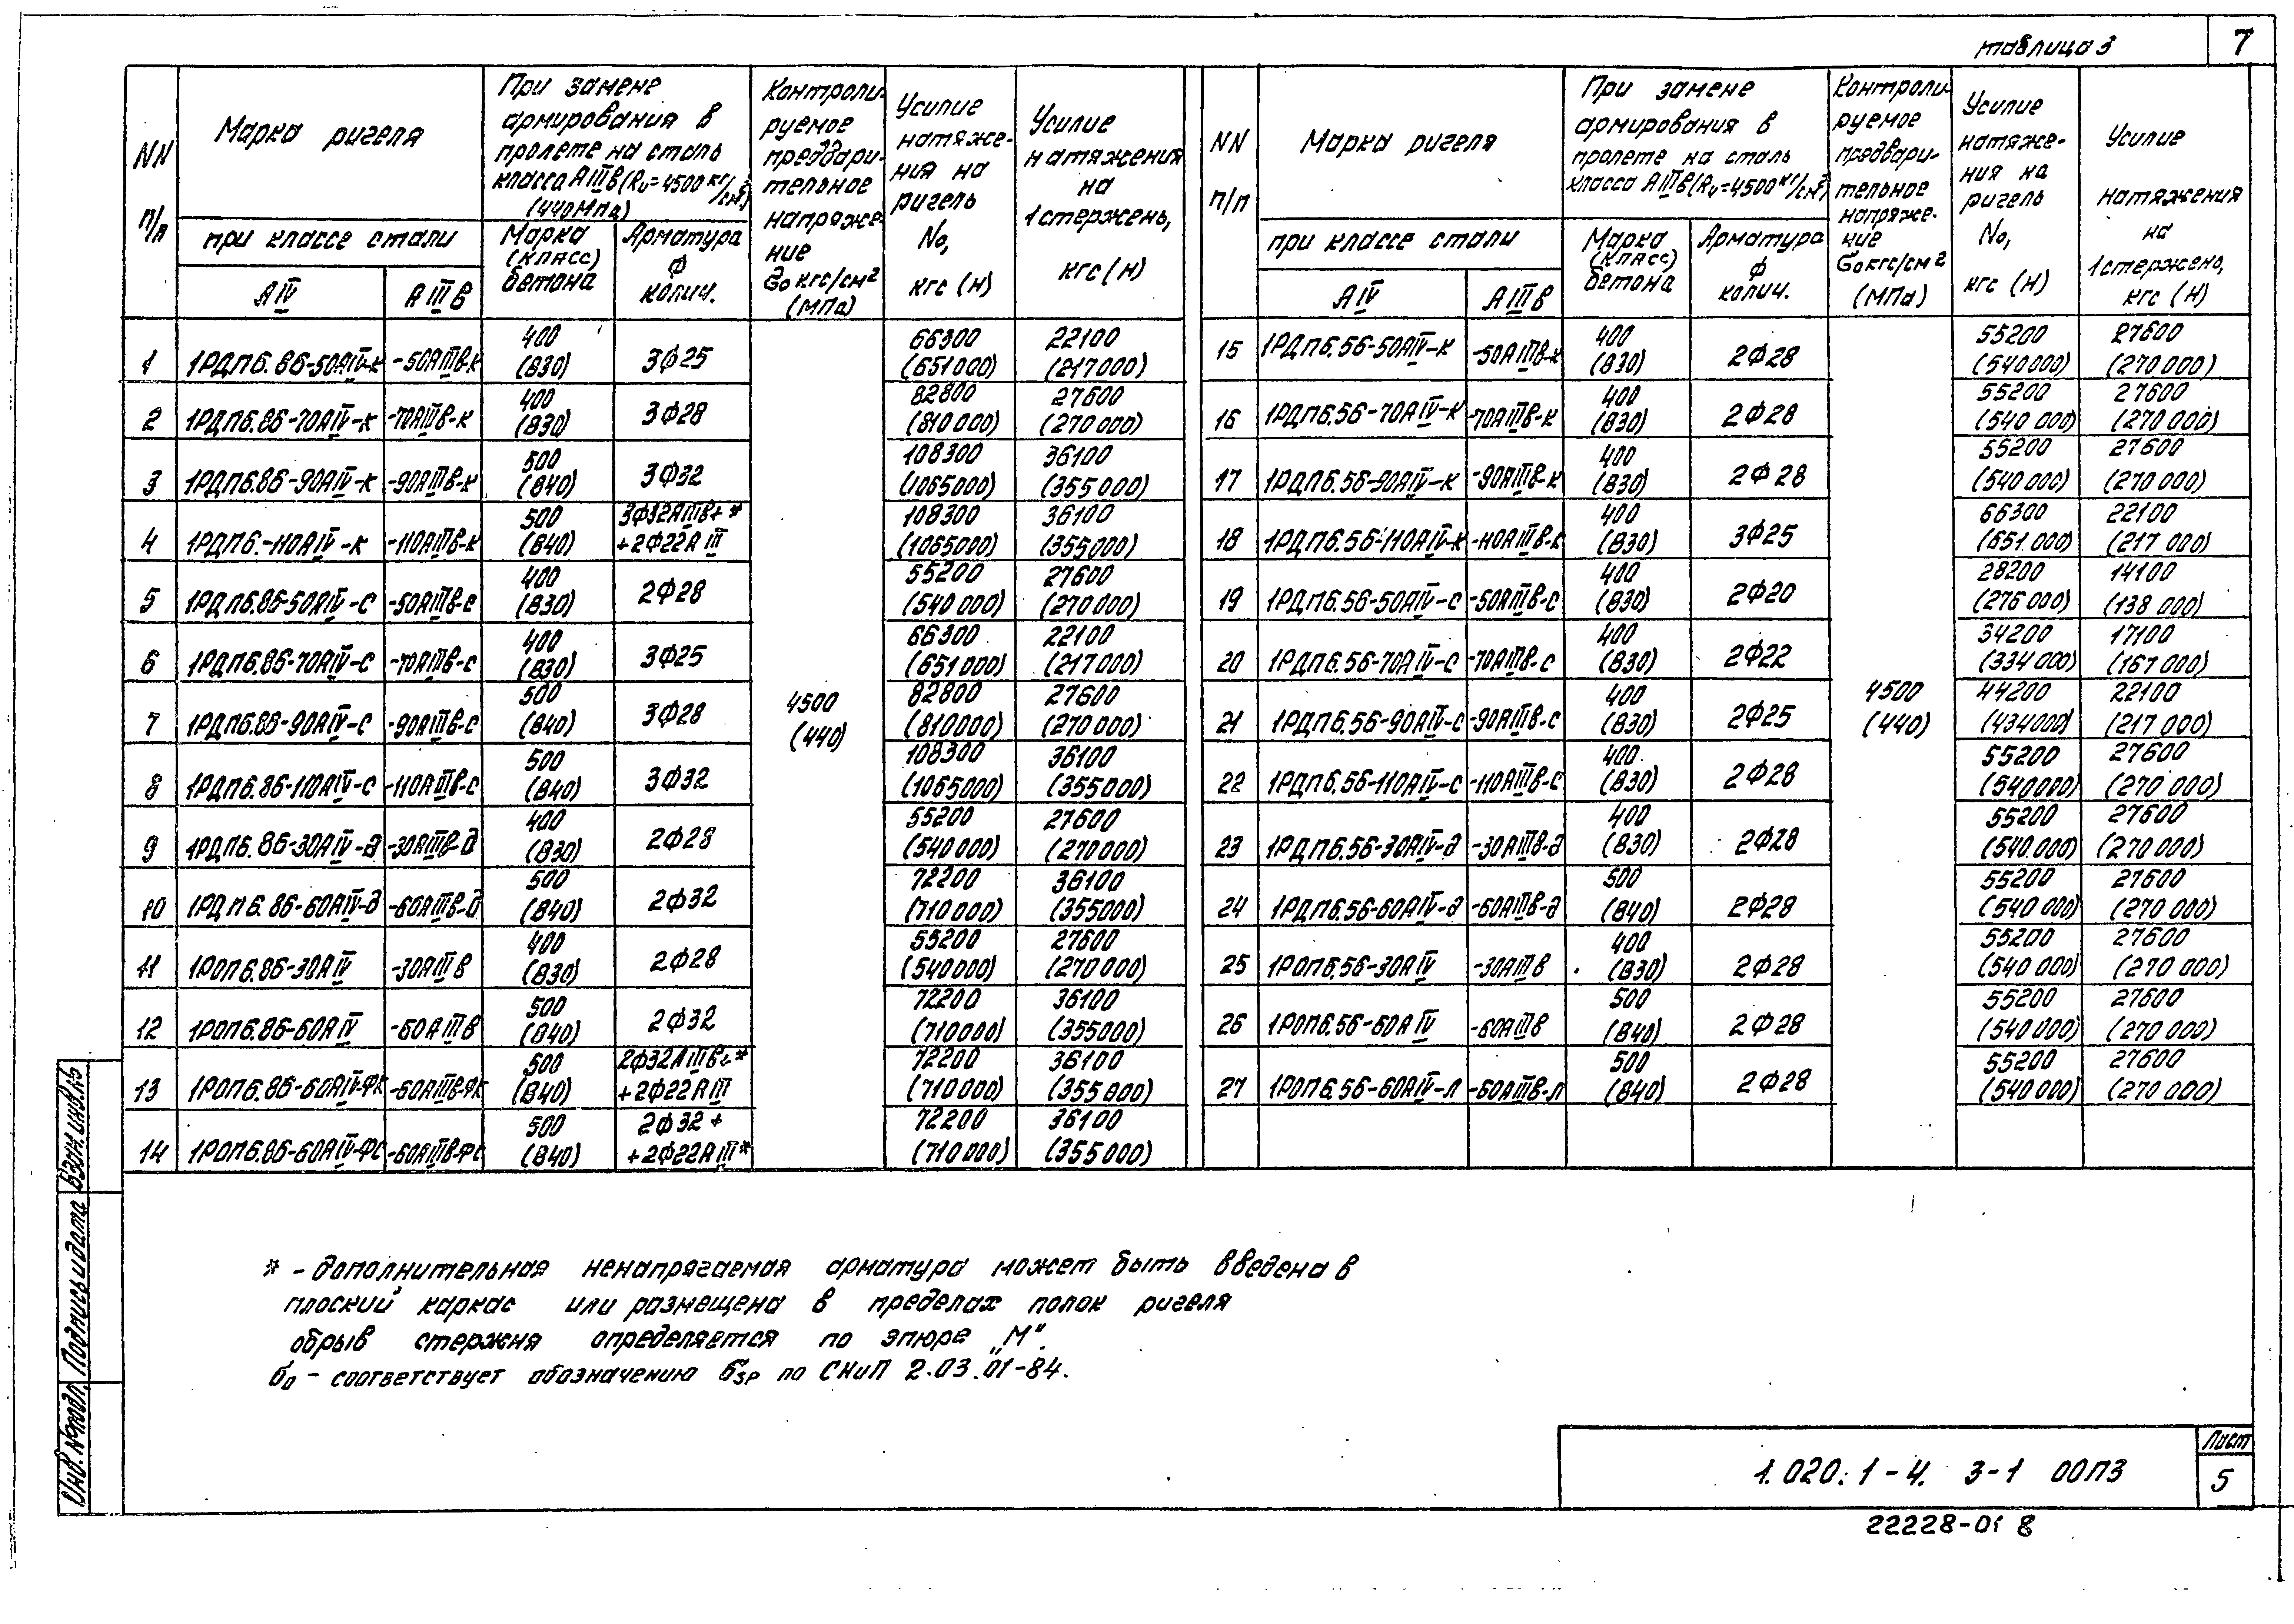 таблица 3
7
NN п/п
Марка ригеля
при классе стали
АIV
АIIIв
При замене армирования в пролете на сталь класса АIIIв (Rн=4500 кгс/см²) (440МПа)
Марка (класс) бетона
Арматура ф колич.
Контролируемое предварительное напряжение σо кгс/см² (МПа)
Усилие натяжения на ригель Nо, кгс (н)
Усилие натяжения на 1стержень, кгс (н)
1 1РДП6.86-50АIV-к -50АIIIв-к 400 (В30) 3ф25 66300 (651000) 22100 (217000)
2 1РДП6.86-70АIV-к -70АIIIв-к 400 (В30) 3ф28 82800 (810000) 27600 (270000)
3 1РДП6.86-90АIV-к -90АIIIв-к 500 (В40) 3ф32 108300 (1065000) 36100 (355000)
4 1РДП6.-110АIV-к -110АIIIв-к 500 (В40) 3ф32АIIIв+* +2ф22АIII 108300 (1065000) 36100 (355000)
5 1РДП6.86-50АIV-с -50АIIIв-с 400 (В30) 2ф28 55200 (540000) 27600 (270000)
6 1РДП6.86-70АIV-с -70АIIIв-с 400 (В30) 3ф25 66300 (651000) 22100 (217000)
7 1РДП6.86-90АIV-с -90АIIIв-с 500 (В40) 3ф28 82800 (810000) 27600 (270000)
4500
(440)
8 1РДП6.86-110АIV-с -110АIIIв-с 500 (В40) 3ф32 108300 (1065000) 36100 (355000)
9 1РДП6.86-30АIV-д -30АIIIв-д 400 (В30) 2ф28 55200 (540000) 27600 (270000)
10 1РДП6.86-60АIV-д -60АIIIв-д 500 (В40) 2ф32 72200 (710000) 36100 (355000)
11 1РОП6.86-30АIV -30АIIIв 400 (В30) 2ф28 55200 (540000) 27600 (270000)
12 1РОП6.86-60АIV -60АIIIв 500 (В40) 2ф32 72200 (710000) 36100 (355000)
13 1РОП6.86-60АIV-фк -60АIIIв-фк 500 (В40) 2ф32АIIIв+* +2ф22АIII 72200 (710000) 36100 (355000)
14 1РОП6.86-60АIV-фс -60АIIIв-фс 500 (В40) 2ф32+ +2ф22АIII* 72200 (710000) 36100 (355000)
NN п/п
Марка ригеля
при классе стали
АIV
АIIIв
При замене армирования в пролете на сталь класса АIIIв (Rн=4500 кгс/см²)
Марка (класс) бетона
Арматура ф колич.
Контролируемое предварительное напряжение σо кгс/см² (МПа)
Усилие натяжения на ригель Nо, кгс (н)
Усилие натяжения на 1стержень, кгс (н)
15 1РДП6.56-50АIV-к -50АIIIв-к 400 (В30) 2ф28 55200 (540000) 27600 (270000)
16 1РДП6.56-70АIV-к -70АIIIв-к 400 (В30) 2ф28 55200 (540000) 27600 (270000)
17 1РДП6.56-90АIV-к -90АIIIв-к 400 (В30) 2ф28 55200 (540000) 27600 (270000)
18 1РДП6.56-110АIV-к -110АIIIв-к 400 (В30) 3ф25 66300 (651000) 22100 (217000)
19 1РДП6.56-50АIV-с -50АIIIв-с 400 (В30) 2ф20 28200 (276000) 14100 (138000)
20 1РДП6.56-70АIV-с -70АIIIв-с 400 (В30) 2ф22 34200 (334000) 17100 (167000)
21 1РДП6.56-90АIV-с -90АIIIв-с 400 (В30) 2ф25 44200 (434000) 22100 (217000)
4500
(440)
22 1РДП6.56-110АIV-с -110АIIIв-с 400 (В30) 2ф28 55200 (540000) 27600 (270000)
23 1РДП6.56-30АIV-д -30АIIIв-д 400 (В30) 2ф28 55200 (540.000) 27600 (270000)
24 1РДП6.56-60АIV-д -60АIIIв-д 500 (В40) 2ф28 55200 (540000) 27600 (270000)
25 1РОП6.56-30АIV -30АIIIв 400 (В30) 2ф28 55200 (540000) 27600 (270000)
26 1РОП6.56-60АIV -60АIIIв 500 (В40) 2ф28 55200 (540000) 27600 (270000)
27 1РОП6.56-60АIV-л -60АIIIв-л 500 (В40) 2ф28 55200 (540000) 27600 (270000)
* - дополнительная ненапрягаемая арматура может быть введена в
плоский каркас или размещена в пределах полок ригеля
обрыв стержня определяется по эпюре „М".
σо - соответствует обозначению σsp по СНиП 2.03.01-84.
Инв. № подл. Подпись и дата Взам. инв. №
1.020.1-4. 3-1 00ПЗ
Лист
5
22228-01 8